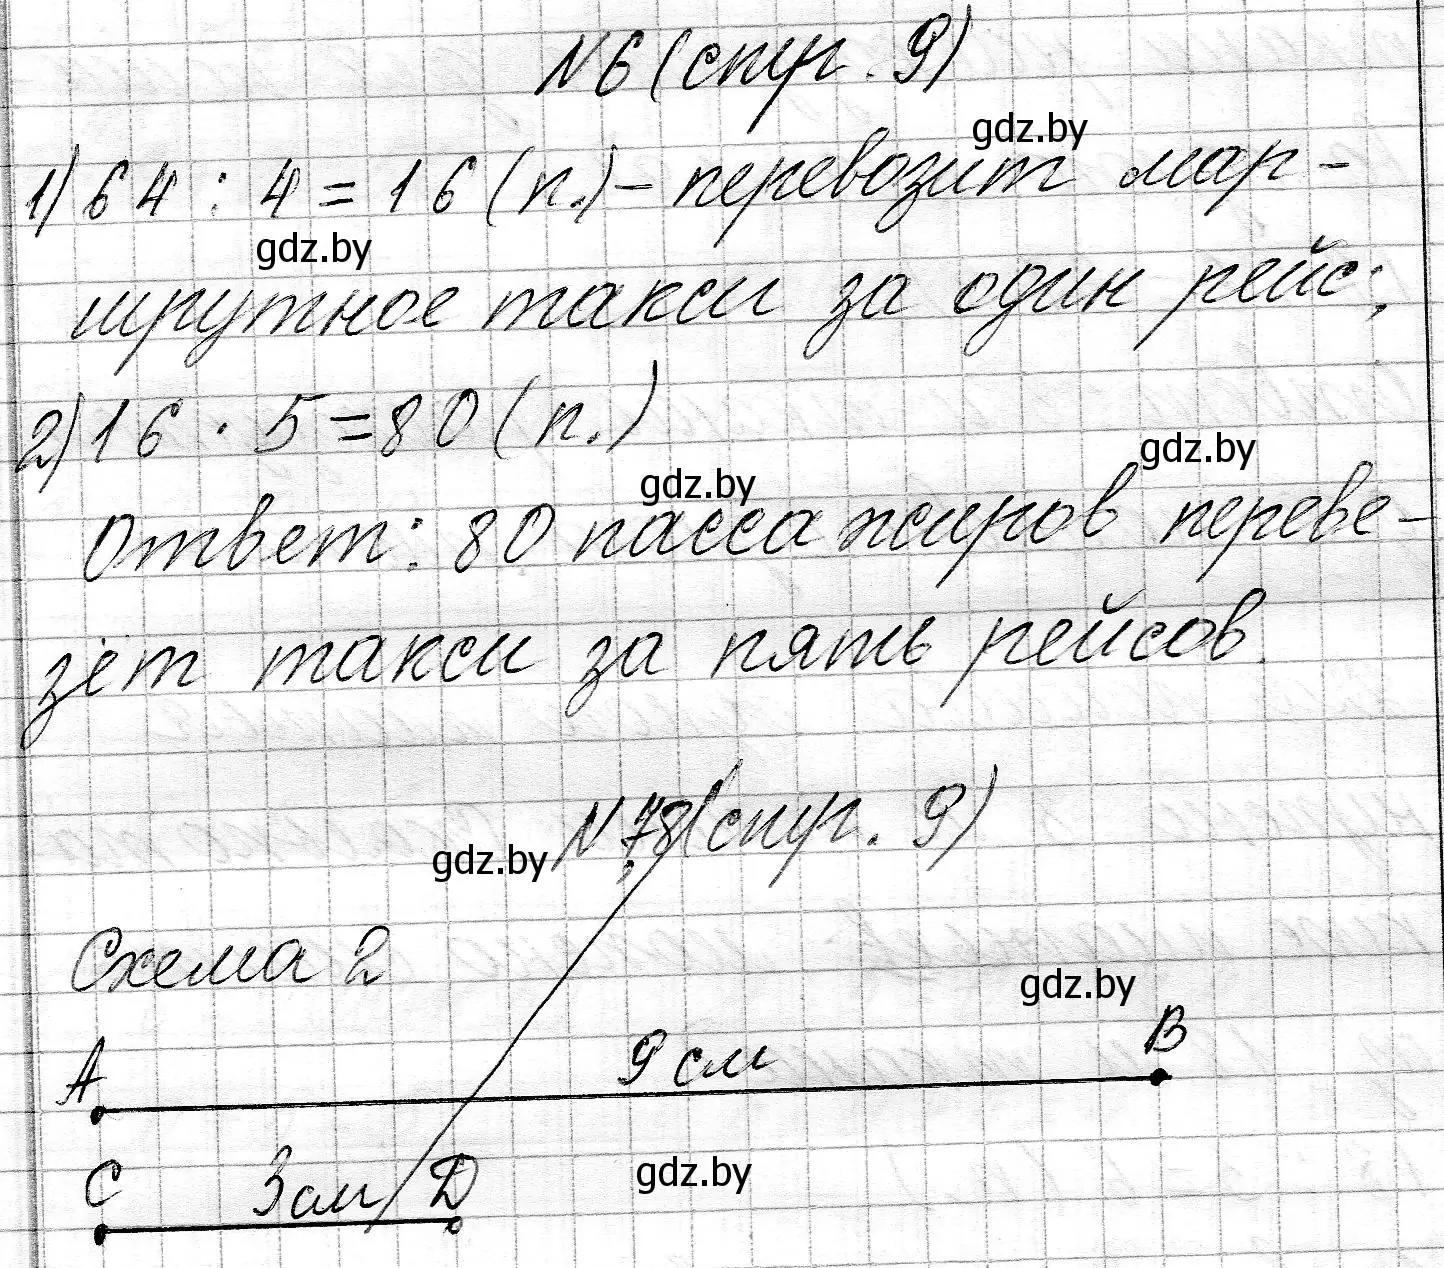 N6 (стр. 9)
gdz.by
1) 64 : 4 = 16 (п.) - перевозит мар-
gdz.by
шрутное такси за один рейс;
2) 16 · 5 = 80 (п.)
gdz.by
gdz.by
Ответ: 80 пассажиров переве-
зёт такси за пять рейсов.
(стр. 9)
gdz.by
Схема 2
gdz.by
A 9 см B
C 3 см D
gdz.by